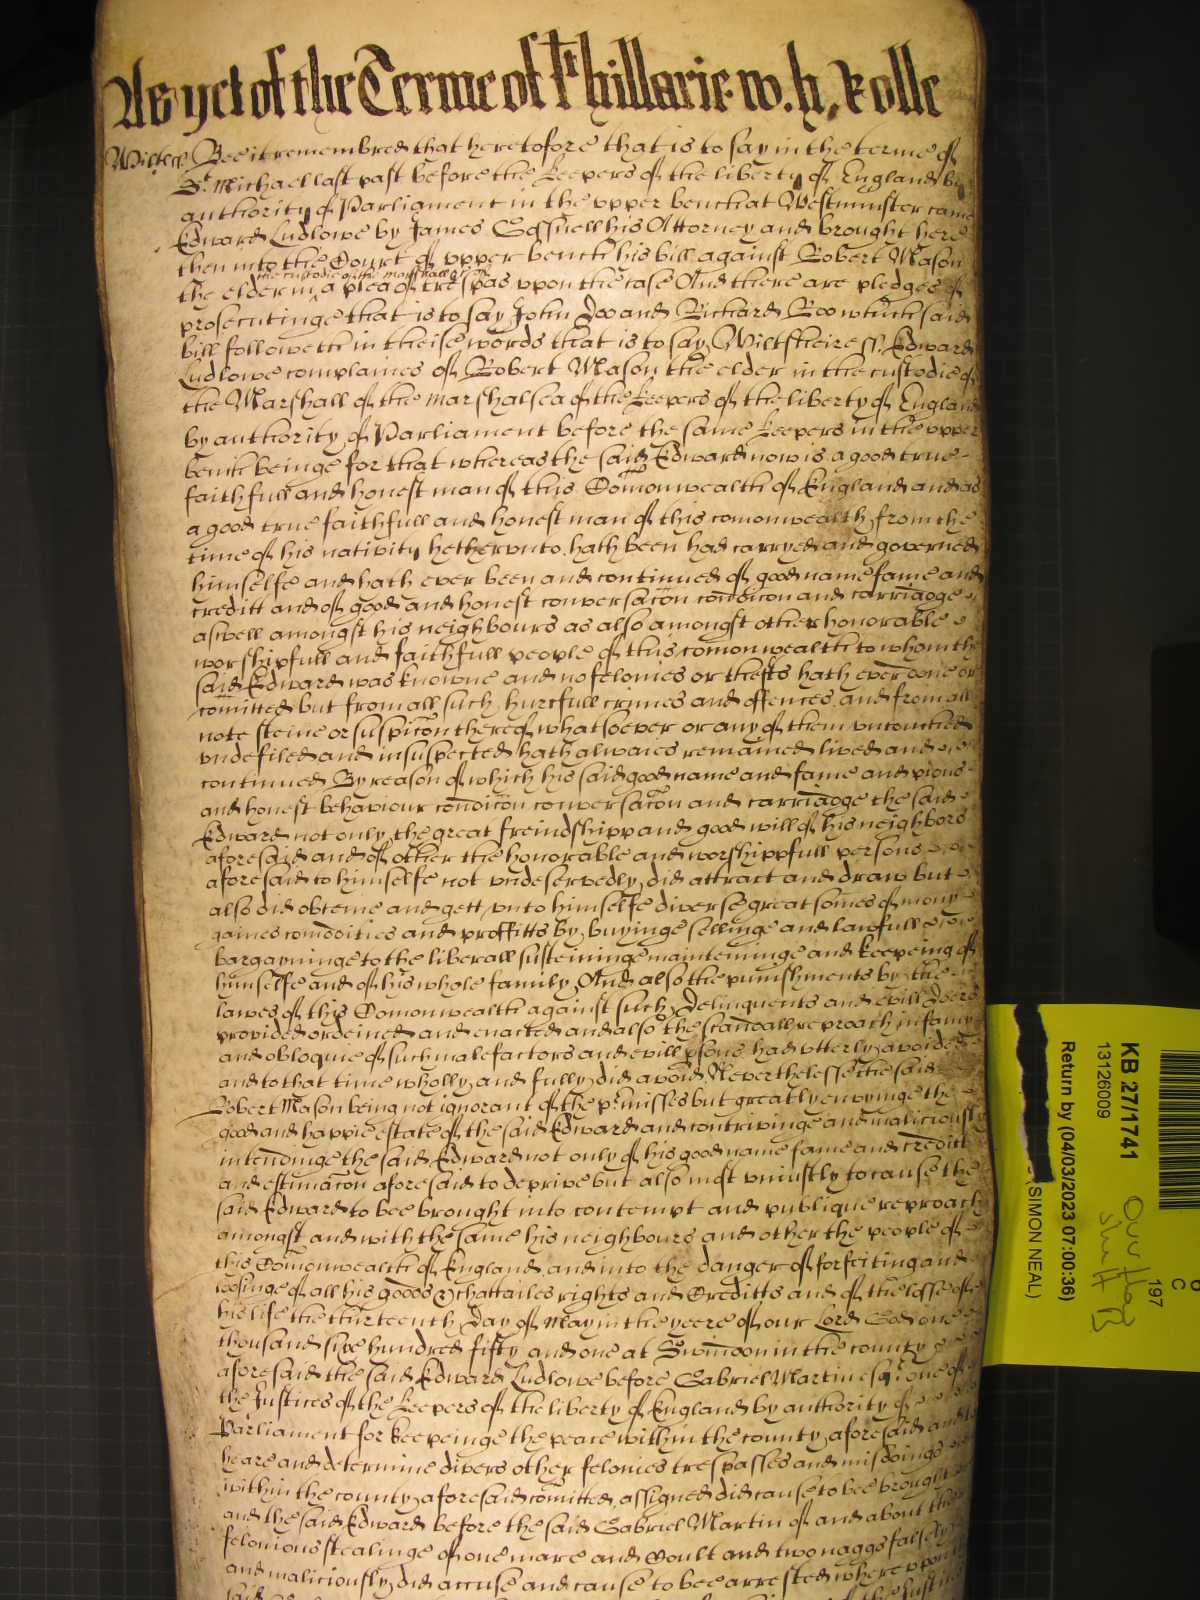 As yet of the Terme of St hillarie w.h. Rolle
Wiltes Bee it remembred that heretofore that is to say in the terme of
St Michael last past before the Keepers of the liberty of England by
authority of Parliament in the vpper bench at Westminster came
Edward Ludlowe by James Gosnell his Attorney and brought here
then into the Court of vpper bench his bill against Robert Mason
the custodie of the marshall &c of
the elder in a plea of trespas vpon the case And there are pledges of
prosecutinge that is to say John Doo and Richard Roo which said
bill followeth in theise words that is to say Wiltsheire ss. Edward
Ludlowe complaines of Robert Mason the elder in the custodie of
the Marshall of the marshalsea of the Keepers of the liberty of England
by authority of Parliament before the same Keepers in the vpper
bench beinge for that whereas the said Edward now is a good true
faithfull and honest man of this Comonwealth of England and as
a good true faithfull and honest man of this comonwealth from the
time of his nativity hethervnto hath been had carryed and governed
himselfe and hath ever been and continued of good name fame and
creditt and of good and honest conversacon condicon and carriadge
aswell amongst his neighbours as also amongst other honorable
worshipfull and faithfull people of this comonwealth to whom the
said Edward was knowne and no felonies or thefts hath ever done or
comitted but from all such hurtfull crimes and offences and from all
note steine or suspicon thereof whatsoever or any of them vntouched
vndefiled and insuspected hath alwaies remained lived and
continued By reason of which his said good name and fame and pious
and honest behaviour condicon conversacon and carriadge the said
Edward not only the great freindshipp and good will of his neighbors
aforesaid and of other the honorable and worshippfull persons
aforesaid to himselfe not vndeservedly did attract and draw but
also did obteine and gett vnto himselfe diverse great somes of mony
gaines comodities and proffitts by buyinge sellinge and lawfull
bargayninge to the liberall susteininge mainteininge and keepeing of
himselfe and of his whole family And also the punishments by the
lawes of this Comonwealth against such Delinquents and evill doers
provided ordeined and enacted and also the scandall reproach infamy
and obloquie of such malefactors and evill psons had vtterly avoided
and to that time wholly and fully did avoid Neverthelesse the said
Robert Mason being not ignorant of the pmisses but greatly envyinge the
good and happie estate of the said Edward and contrivinge and maliciously
intendinge the said Edward not only of his good name fame and creditt
and estimacon aforesaid to deprive but also most vniustly to cause the
said Edward to bee brought into contempt and publique reproach
amongst and with the same his neighbours and other the people of
this Comonwealth of England and into the danger of forfeiting and
loosinge of all his goods & chattailes rights and Creditts and of the losse of
his life the thirteenth Day of May in the yeere of our Lord God one
thousand sixe hundred fifty and one at Swindon in the county
aforesaid the said Edward Ludlowe before Gabriel Martin esqr. one of
the Justices of the Keepers of the liberty of England by authority of
Parliament for keepeinge the peace within the county aforesaid and to
heare and determine divers other felonies trespasses and misdoings
within the county aforesaid comitted assigned did cause to bee brought
and the said Edward before the said Gabriel Martin of and about the
felonious stealinge of one mare and Coult and two naggs falsely
and maliciously did accuse and cause to bee arrested wherevpon
said
KB 27/1741
13126009
Return by (04/03/2023 07:00:36)
SIMON NEAL)
197
C
6